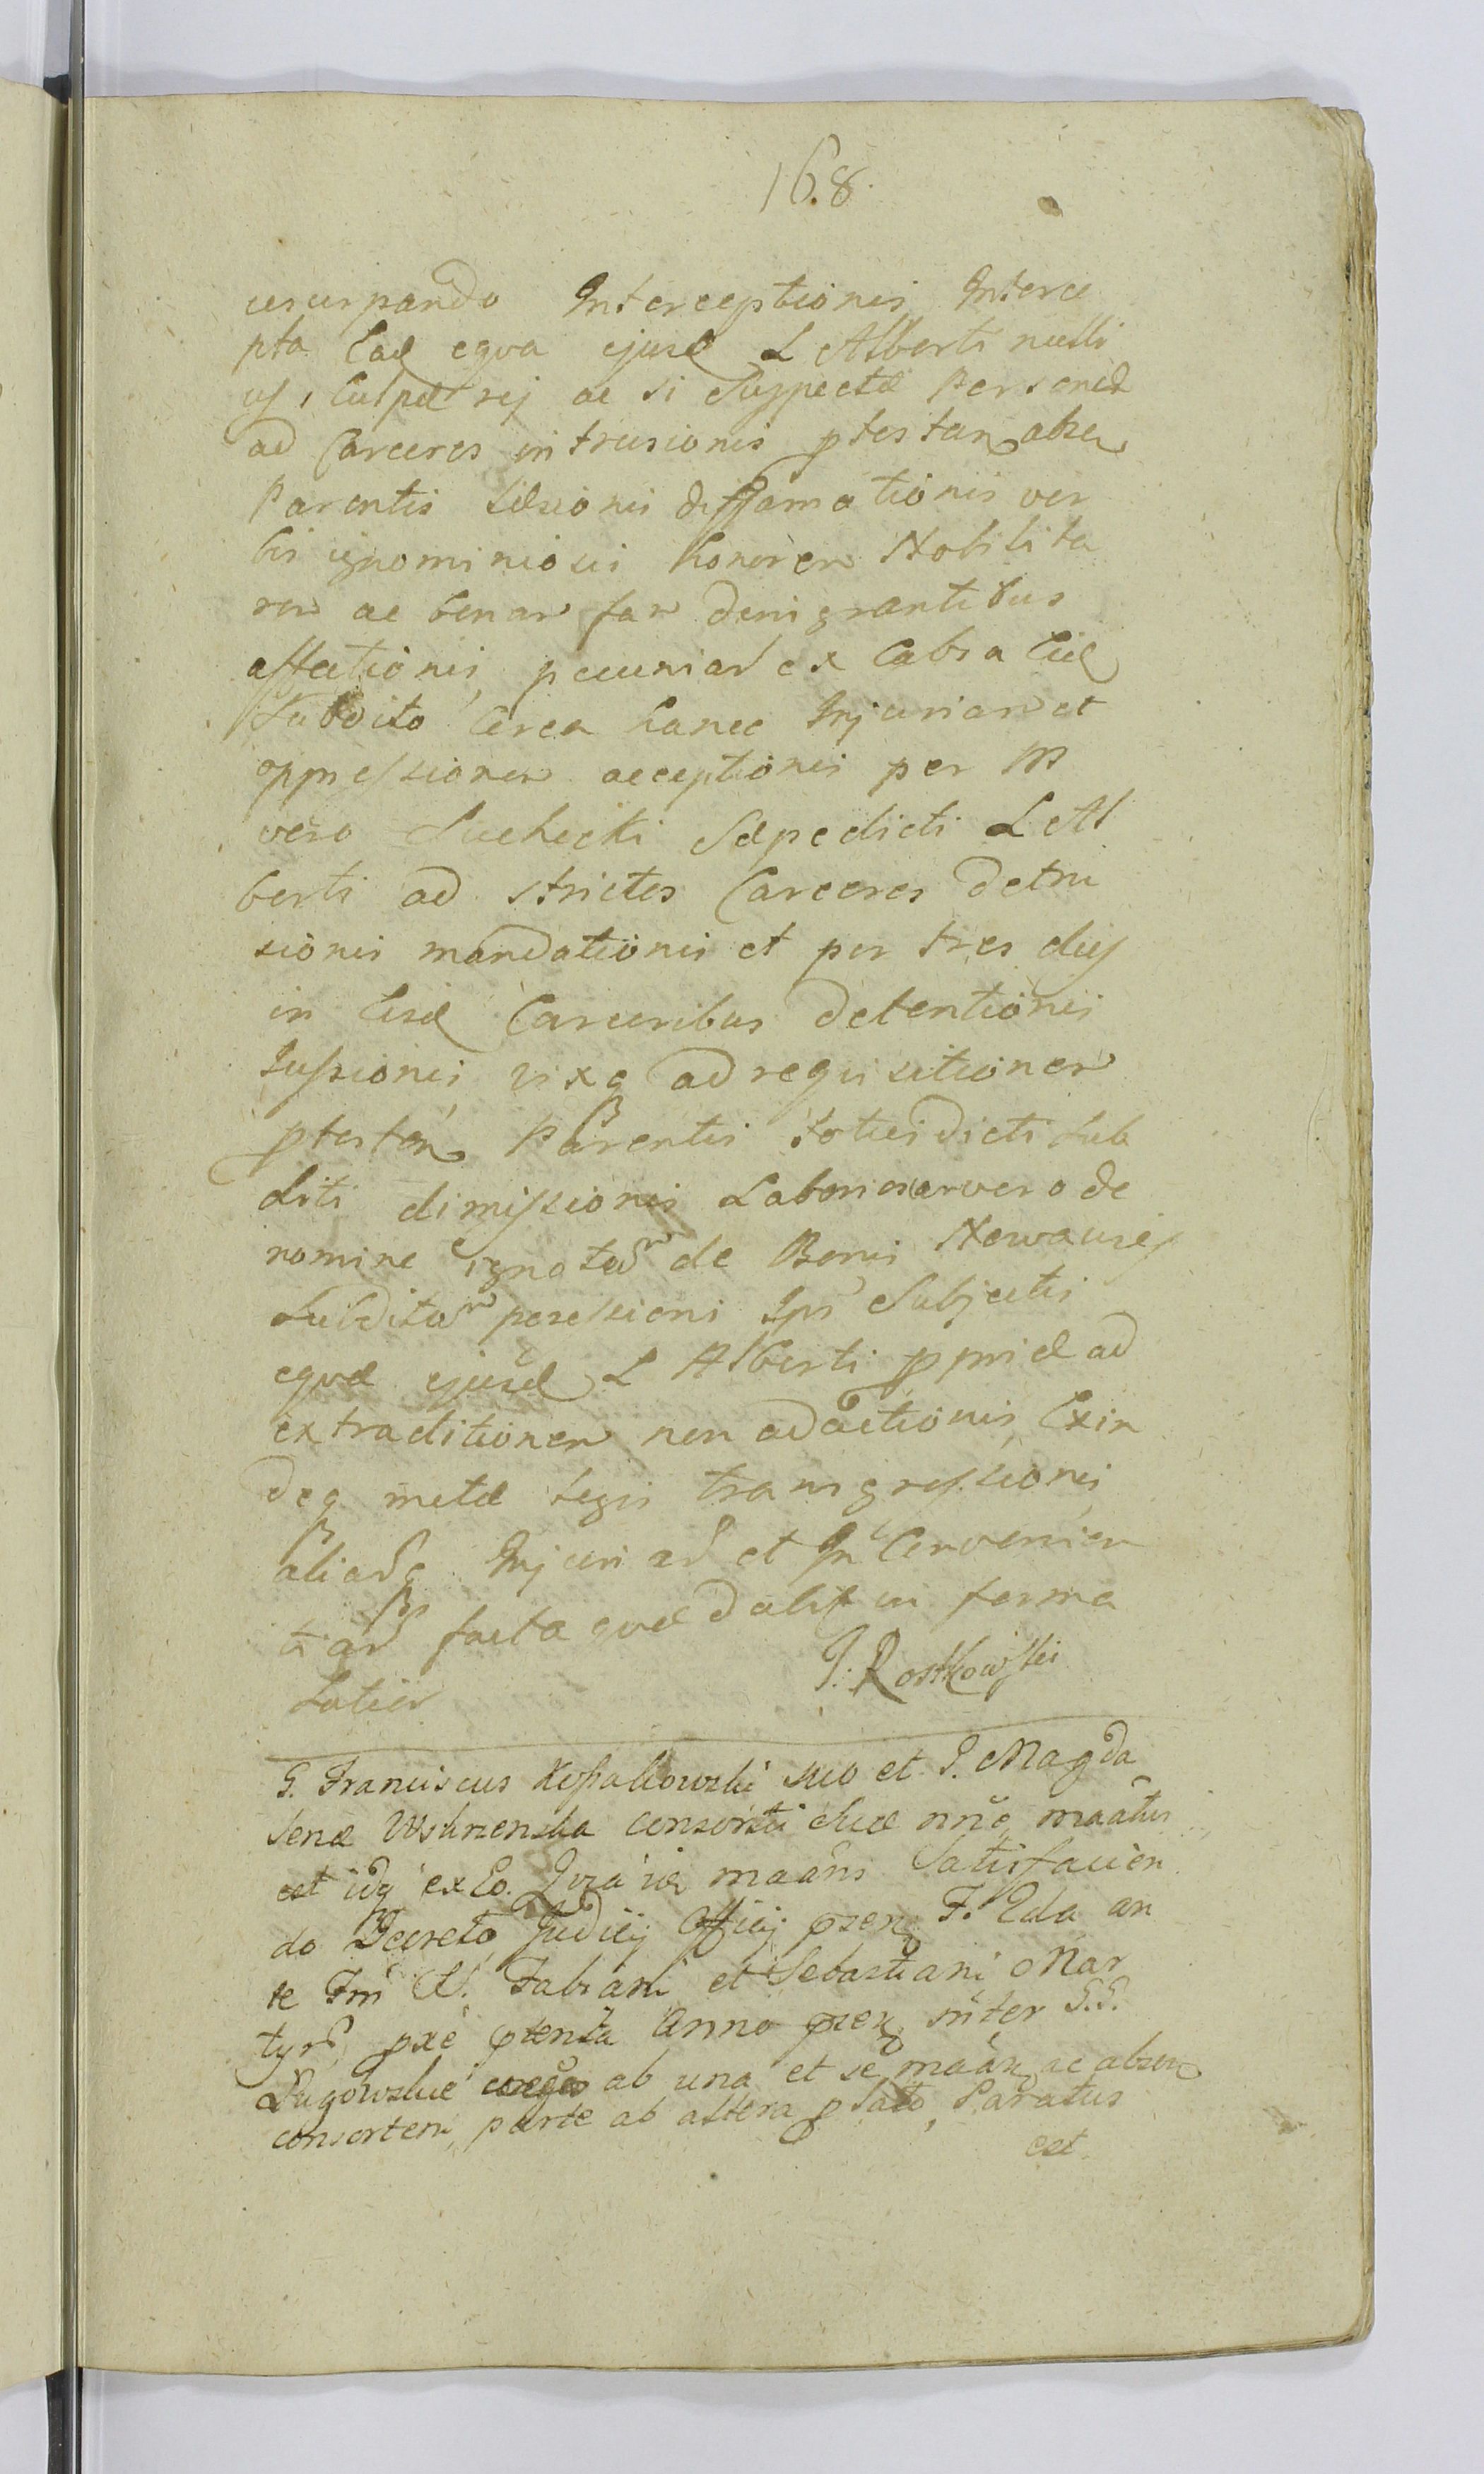 168.
usurpando Interceptionis Interce
pta Ead equa ejusd L Alberti nulli
us, Culpæ rej ac si Suspectæ Personæ
ad Carceres intrusionis ptestan absen
Parentis Læsionis diffamationis ver
bis ignominiosis honorem Nobilita
rem ac bonam fam denigrantibus
affectionis, pecuniar ex Cabsa Ejd
Subdito Circa hanc Injuriam et
oppressionem acceptionis per M
vero Suchecki Sæpedicti L Al
berti ad strictos Carceres detru
sionis mandationis et per tres dies
in Eisd Carceribus detentionis
Jussionis vixq ad requisitionem
ptestan Parentis totiesdicti Sub
diti dimissionis Laboriosar vero de
nomine ignotor de Bonis Nowawsies
Subditor possessioni Ips Subjectis
equæ ejusd L Alberti ppriæ ad
extraditionem non adactionis, Exin
deq metæ legis transgressionis
aliarq Injuriar et In Convenien
tiar facta quæ dabit in forma
Latior J: Rostkowski
G. Franciscus Kossakowski suo et G. Magda
lenæ Wykrzenska consortis Suæ nne maatus
est idq exEo. Quia ia maans Satisfacien
do Decreto Judicij Officij pzen F. 2da an
te Fm SS. Fabiani et Sebastiani Mar
tyr pxe ptenta Anno pzen inter G.G.
Ługowskie congs ab una et se maan ac absen
consortem parte ab altera plato, Paratus
est